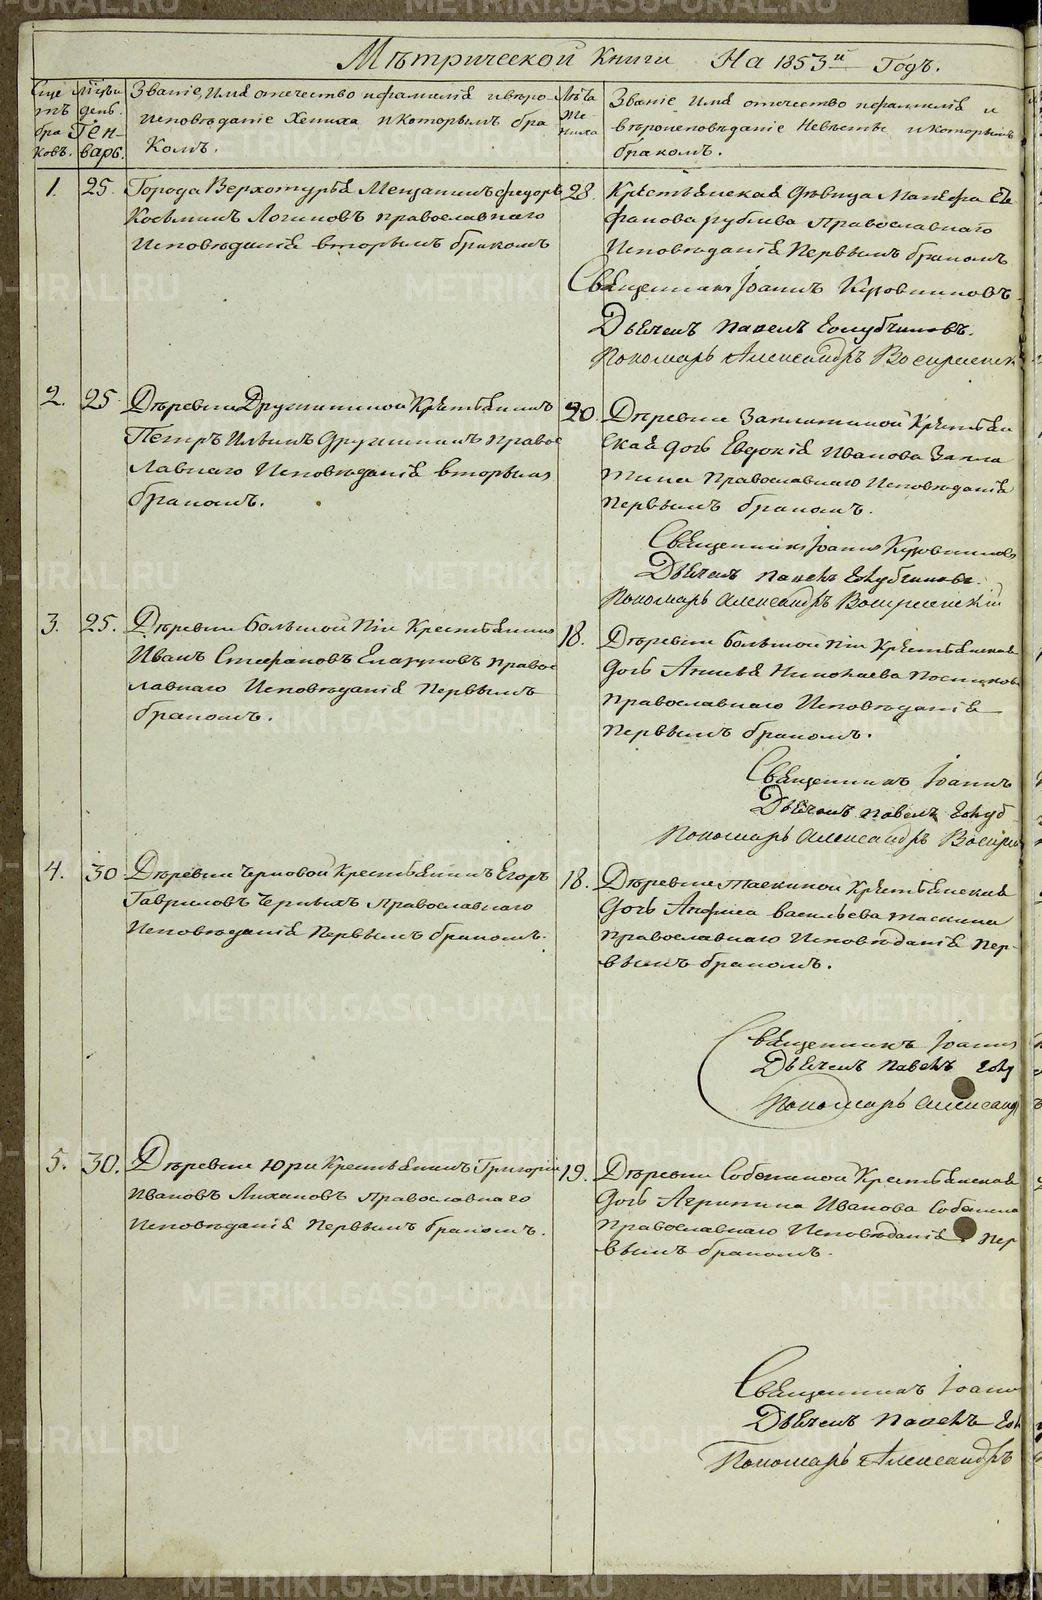 Мѣтрической Книги На 1853й Годъ.
Сще
тъ
бра
ковъ.
Мѣцы
день.
Ген-
варь.
Званіе, Имя отечество и фамилія и вѣро-
исповѣданіе Жениха и которымъ бра
комъ.
Лѣта
же-
ниха
Званіе Имя отечество и фамилія и
вѣроисповѣданіе Невѣсты и которымъ
бракомъ.
1. 25. Города Верхотурья Мещанинъ Федоръ
Косьминъ Логиновъ православнаго
Исповѣданія вторымъ бракомъ
28. Крестьянская дѣвица Манефа Сте
фанова Православнаго
Исповѣданія Первымъ бракомъ
Священникъ Іоаннъ Кузовниковъ
Дьячекъ Павелъ Голубчиковъ.
Пономарь Александръ Воскресенск
2. 25 Дѣревни Дружининой Крестьянинъ
Петръ Ильинъ Дружининъ Правос
лавнаго Исповѣданія вторымъ
бракомъ.
20. Дѣревни Заплатиной Крестьян
ская дочь Евдокія Иванова Запла
тина Православнаго Исповѣданія
первымъ бракомъ.
Священникъ Іоаннъ Кузовниковъ
Дьячекъ Павелъ Голубчиковъ.
Пономарь Александръ Воскресенскій
3. 25. Дѣревни Большой Піи Крестьянинъ
Иванъ Стефановъ Глазуновъ Правос
лавнаго Исповѣданія Первымъ
бракомъ.
18. Дѣревни Большой Піи Крестьянская
дочь Анисья Николаева Постникова
Православнаго Исповѣданія
Первымъ бракомъ.
Священникъ Іоаннъ
Дьячекъ Павелъ Голуб
Пономарь Александръ Воскрес
4. 30 Дѣревни Черновой Крестьянинъ Егоръ
Гавриловъ Черныхъ Православнаго
Исповѣданія Первымъ бракомъ.
18. Дѣревни Таскиной Крестьянская
дочь Анфиса Васильева Таскина
Православнаго Исповѣданія Пер-
вымъ бракомъ.
Священникъ Іоаннъ
Дьячекъ Павелъ Голу
Пономарь Александ
5. 30. Дѣревни Юри Крестьянинъ Григорій
Ивановъ Лихановъ Православнаго
Исповѣданія Первымъ бракомъ.
19. Дѣревни Собениной Крестьянская
дочь Агрипина Иванова Собенина
Православнаго Исповѣданія Пер
вымъ бракомъ.
Священникъ Іоанн
Дьячекъ Павелъ Гол
Пономарь Александръ
METRIKI.GASO-URAL.RU